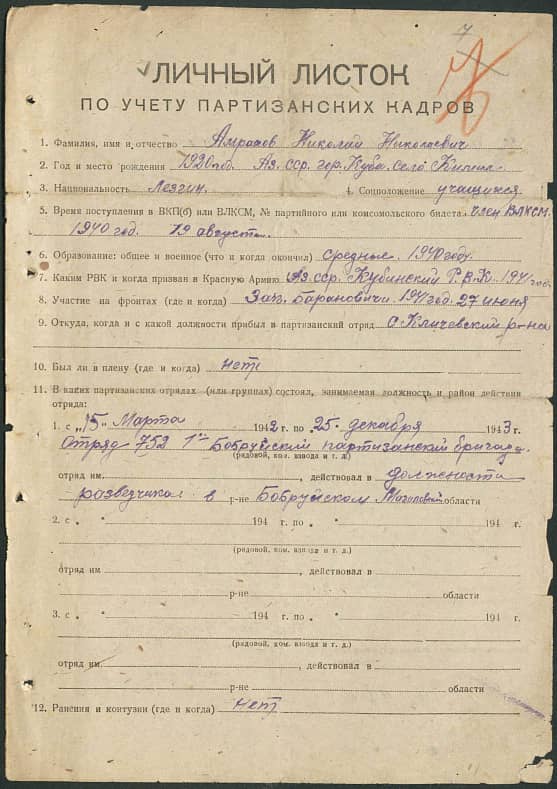 7
ЛИЧНЫЙ ЛИСТОК
ПО УЧЕТУ ПАРТИЗАНСКИХ КАДРОВ
1. Фамилия, имя и отчество Николай Николаевич
2. Год и место рождения 1920 год. Аз. сср. гор. Куба. село
3. Национальность Лезгин. 4. Соцположение учащийся
5. Время поступления в ВКП(б) или ВЛКСМ, № партийного или комсомольского билета член ВЛКСМ.
1940 год. 19 август.
6. Образование: общее и военное (что и когда окончил) средные. 1940 году.
7. Каким РВК и когда призван в Красную Армию Аз. сср. Кубинский Р.В.К. 1941 год.
8. Участие на фронтах (где и когда) Зап. барановичи. 1941 год. 27 июня
9. Откуда, когда и с какой должности прибыл в партизанский отряд с Кличевский р-на
10. Был ли в плену (где и когда) нет
11. В каких партизанских отрядах (или группах) состоял, занимаемая должность и район действия
отряда:
1. с „15" Марта 1942 г. по „25" декабря 1943 г.
Отряд 752 1й Бобруйский партизанский бригада.
(рядовой, ком. взвода и т. д.)
отряд им. , действовал в должности
разведчикал в р-не Бобруйском области
2. с „ " 194 г. по „ " 194 г.
(рядовой, ком. взвода и т. д.)
отряд им , действовал в
р-не области
3. с „ " 194 г. по „ " 194 г.
(рядовой, ком. взвода и т. д.)
отряд им. , действовал в
р-не области
12. Ранения и контузии (где и когда) нет